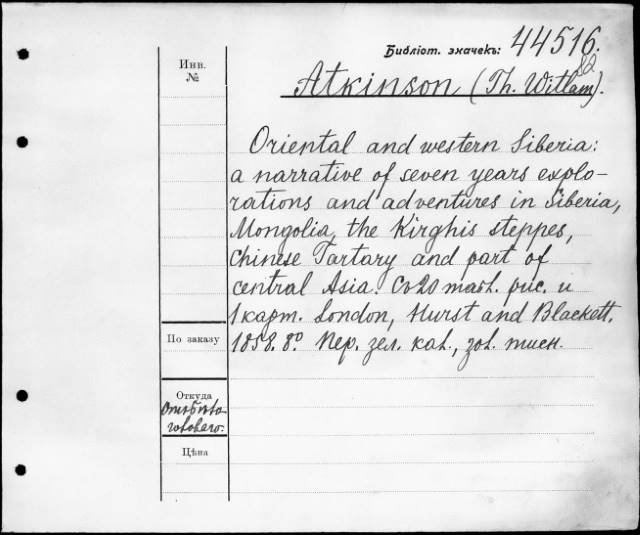 Библіот. значекъ: 44516.
Инв.
№
Atkinson (Th. Witlam).
Oriental and western Siberia:
a narrative of seven years explo-
rations and adventures in Siberia,
Mongolia, the Kirghis steppes,
Chinese Tartary and part of
central Asia. Съ 20 табл. рис. и
1 карт. London, Hurst and Blackett.
1858. 8° Пер. зел. кол., зол. тисн.
По заказу
Откуда
Цѣна